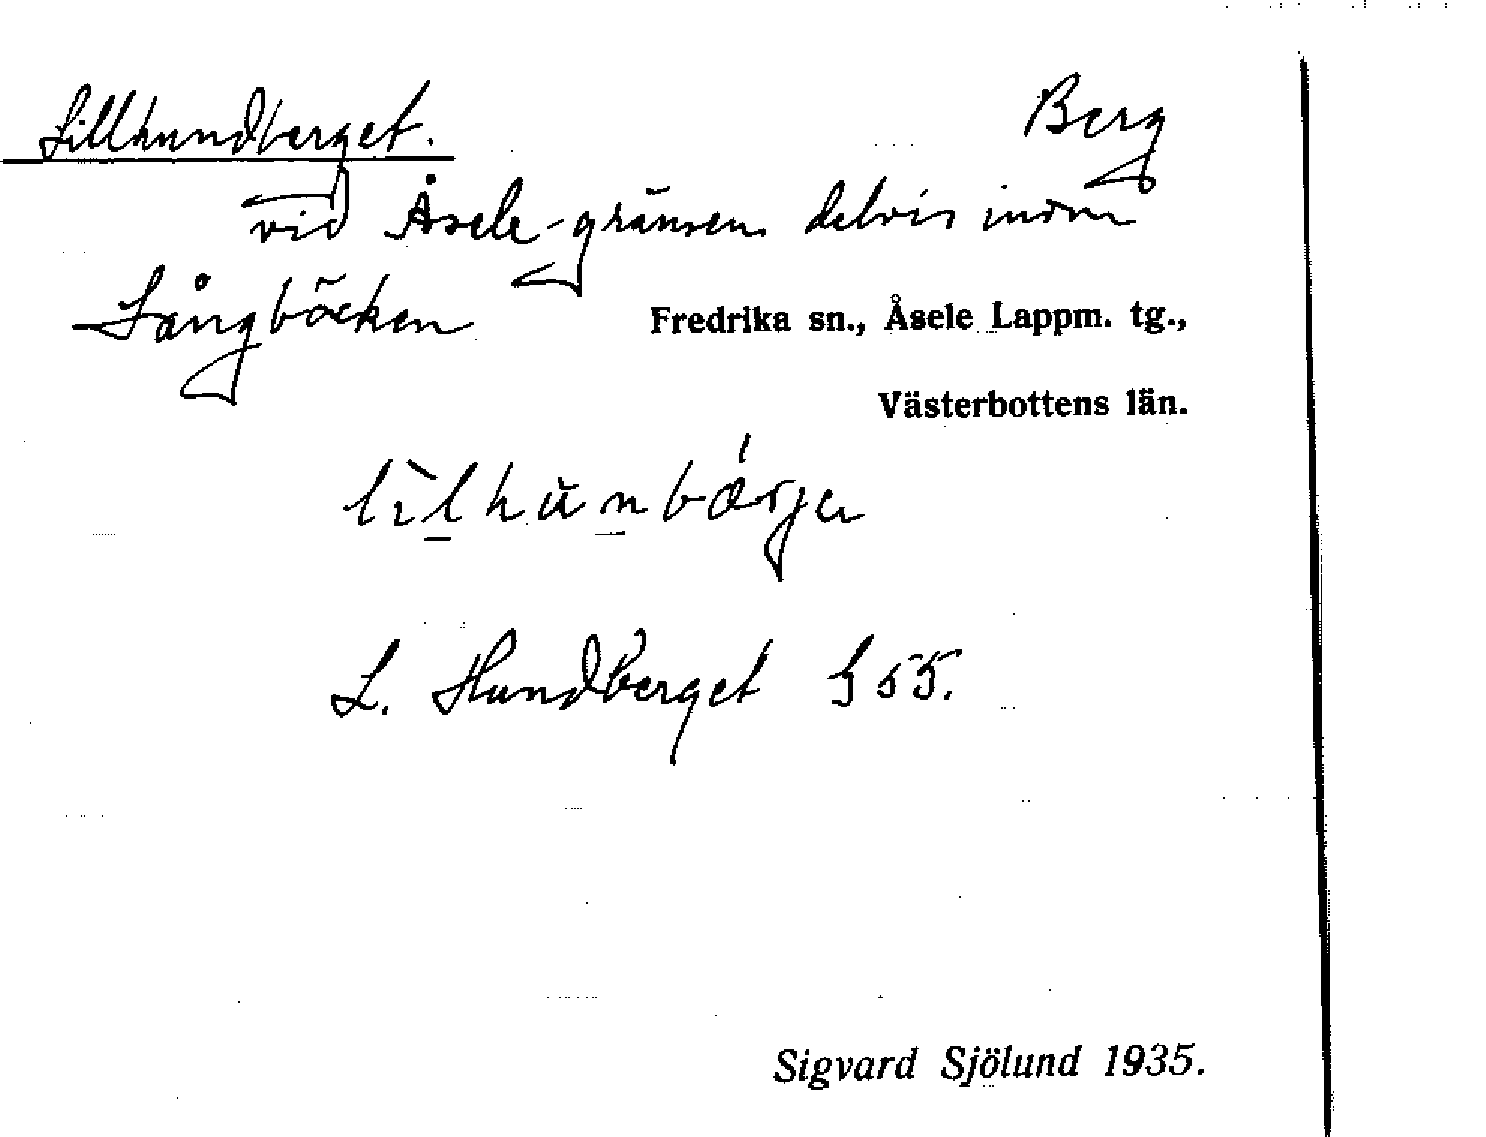 Lillhundberget. Berg
vid Åsele-gränsen delvis inom
Långbäcken Fredrika sn., Åsele Lappm. tg.,
Västerbottens län.
L. Hundberget G 55.
Sigvard Sjölund 1935.